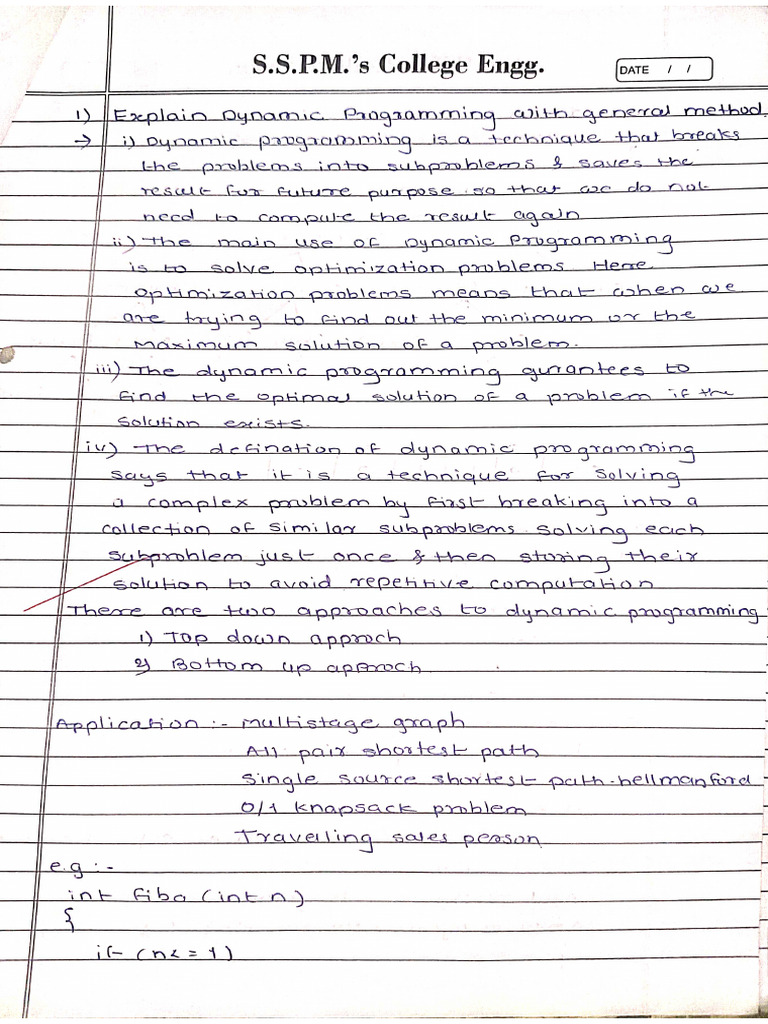 S.S.P.M.'s College Engg.
DATE / /
1) Explain Dynamic Programming with general method.
→ i) Dynamic programming is a technique that breaks
the problems into subproblems & saves the
result for future purpose so that we do not
need to compute the result again
ii) The main use of Dynamic Programming
is to solve optimization problems Here
optimization problems means that when we
are trying to find out the minimum or the
maximum solution of a problem.
iii) The dynamic programming gurantees to
find the optimal solution of a problem if the
solution exists.
iv) The defination of dynamic programming
says that it is a technique for solving
a complex problem by first breaking into a
collection of similar subproblems solving each
subproblem just once & then storing their
solution to avoid repetitive computation
There are two approaches to dynamic programming
1) Top down approch
2) Bottom up approch
Application :- Multistage graph
All pair shortest path
Single source shortest path-bellmanford
0/1 knapsack problem
Travelling sales person
e.g :-
int fibo (int n)
{
if (n<=1)